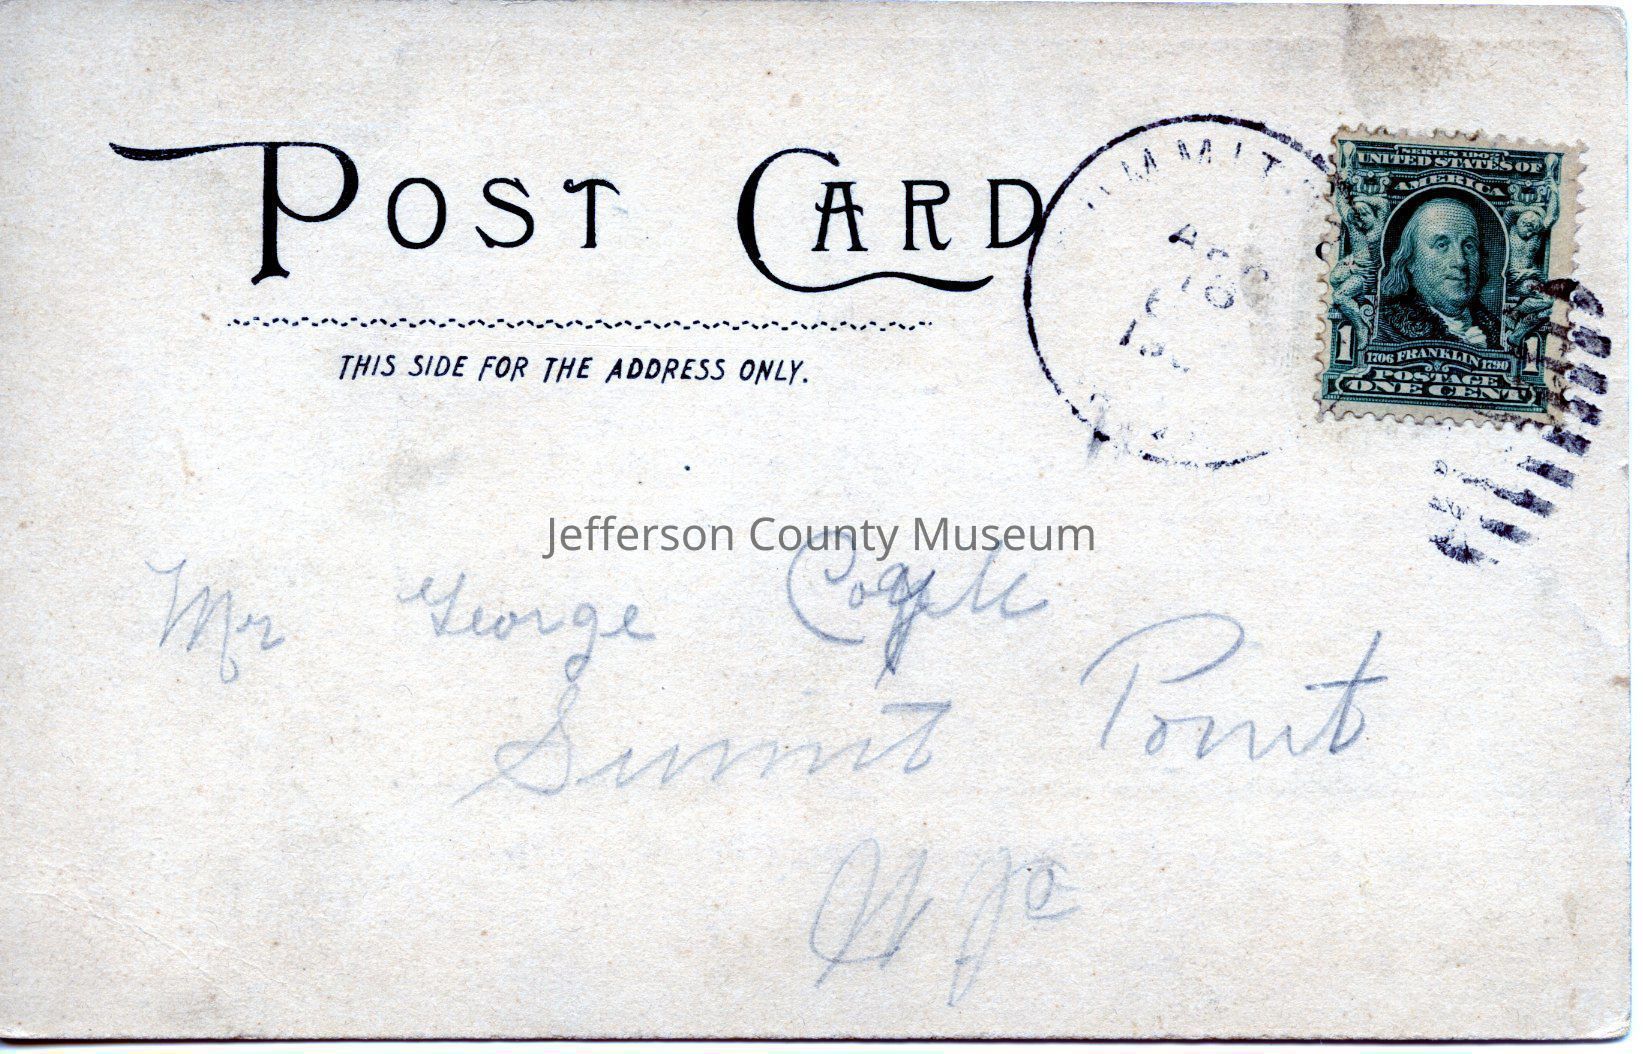 POST CARD
THIS SIDE FOR THE ADDRESS ONLY.
SERIES 1902
UNITED STATES OF
AMERICA
1 1
1706 FRANKLIN 1790
POSTAGE
ONE CENT
Jefferson County Museum
Mr George
Summit Point